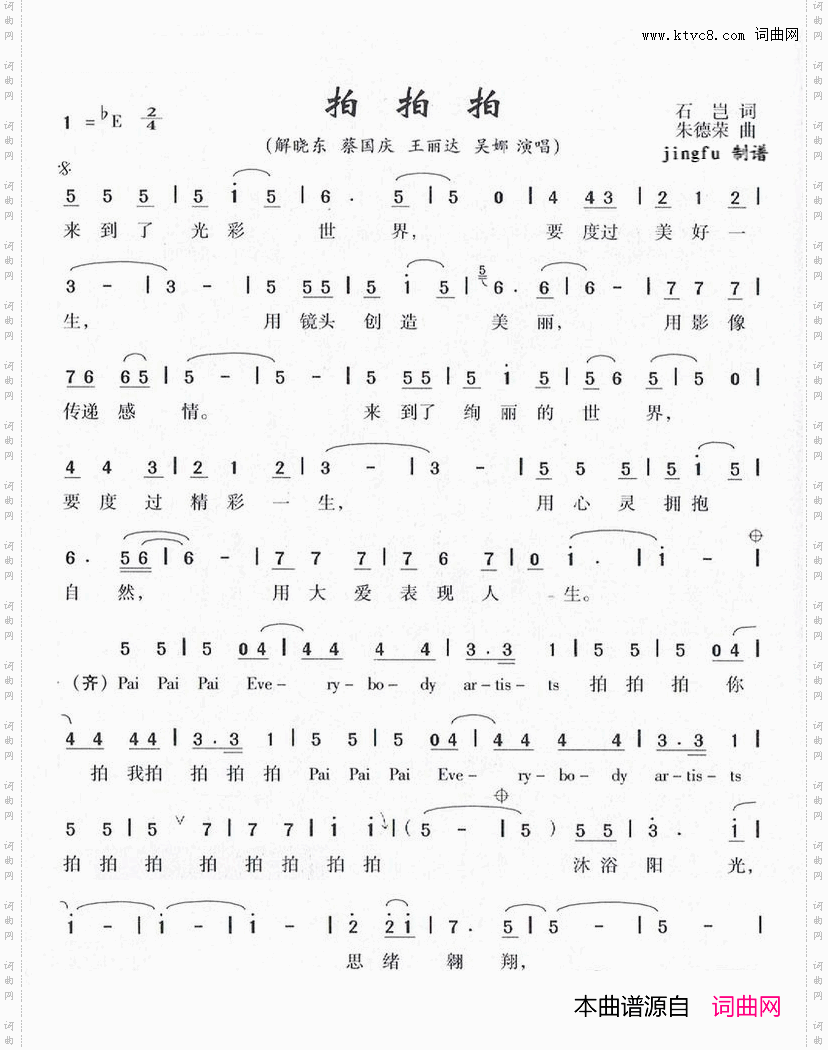 www.ktvc8.com 词曲网
拍 拍 拍
1 = ♭E 2/4
石 岂 词
朱德荣 曲
(解晓东 蔡国庆 王丽达 吴娜 演唱)
jingfu 制谱
5 5 5 | 5 i 5 | 6 . 5 | 5 0 | 4 43 | 2 1 2 |
来 到 了 光 彩 世 界, 要 度过 美 好 一
3 - | 3 - | 5 55 | 5 i 5 | 5 6 . 6 | 6 - | 7 7 7 |
生, 用 镜头 创 造 美 丽, 用 影 像
76 65 | 5 - | 5 - | 5 55 | 5 i 5 | 56 5 | 5 0 |
传递 感 情。 来 到了 绚 丽 的 世 界,
4 4 3 | 2 1 2 | 3 - | 3 - | 5 5 5 | 5 i 5 |
要 度 过 精 彩 一 生, 用 心 灵 拥 抱
6 . 56 | 6 - | 7 7 7 | 76 7 | 0 i . | i - |
自 然, 用 大 爱 表 现 人 生。
5 5 | 5 04 | 44 4 4 | 3 . 3 1 | 5 5 | 5 04 |
(齐) Pai Pai Pai Eve- ry-bo- dy ar-tis- ts 拍 拍 拍 你
44 44 | 3 . 3 1 | 5 5 | 5 04 | 44 4 4 | 3 . 3 1 |
拍 我拍 拍 拍 拍 Pai Pai Pai Eve- ry-bo- dy ar-tis-ts
5 5 | 5 7 | 7 7 | i i | ( 5 - | 5 ) 55 | 3 . i |
拍 拍 拍 拍 拍 拍 拍 拍 沐 浴 阳 光,
i - | i - | i - | 2 2i | 7 . 5 | 5 - | 5 - |
思 绪 翱 翔,
本曲谱源自 词曲网